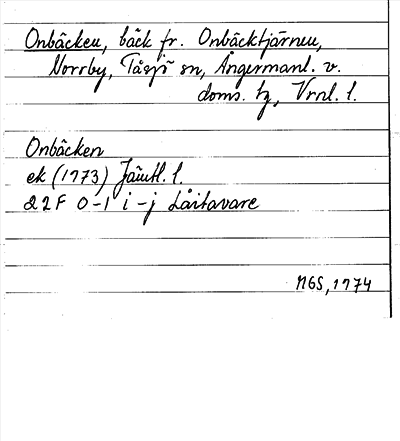 Onbäcken, bäck fr. Onbäcktjärnen,
Norrby, Tåsjö sn, Ångermanl. v.
doms. hg, Vrnl. l.
Onbäcken
ek (1973) Jämtl. l.
22F 0-1 i-j Låitavare
MGS, 1974